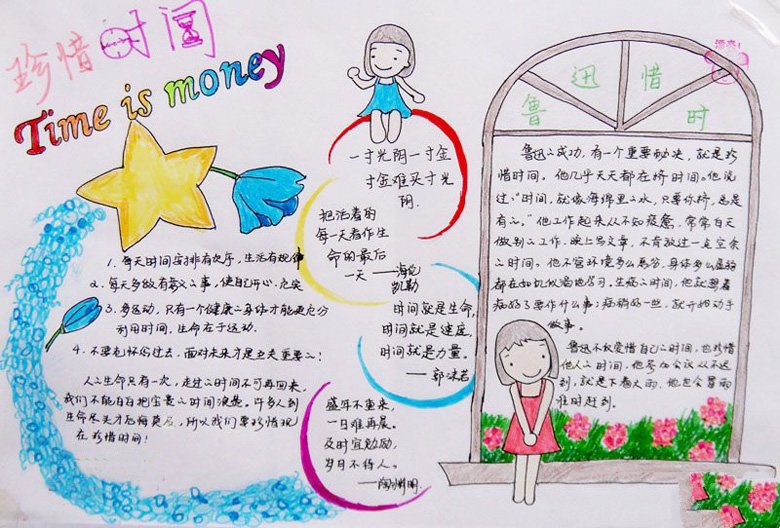 珍惜时间
Time is money
漂亮!
鲁迅惜时
一寸光阴一寸金
寸金难买寸光
阴.
把活着的
每一天看作生
命的最后
一天
——海伦
凯勒
时间就是生命,
时间就是速度,
时间就是力量。
——郭沫若
盛年不重来,
一日难再晨。
及时宜勉励,
岁月不待人。
——陶渊明
1. 每天时间安排有次序,生活有规律
2. 每天多做有益之事,使自己开心、充实
3. 多运动,只有一个健康之身体才能更充分
利用时间,生命在于运动.
4. 不要光怀伤过去,面对未来才是至关重要之!
人之生命只有一次,走过之时间不可再回来,
我们不能白白把宝贵之时间浪费。许多人到
生命尽头才后悔莫及,所以我们要珍惜现
在珍惜时间!
鲁迅之成功,有一个重要秘诀,就是珍
惜时间。他几乎天天都在挤时间。他说
过:“时间,就像海绵里之水,只要你挤,总是
有之。”他工作起来从不知疲惫,常常白天
做别之工作,晚上写文章,不肯放过一点空余
之时间。他不管环境多么恶劣,身体多么虚弱
都在如饥似渴地学习。生病之时间,他就想着
病好了要作什么事;病稍好一些,就开始动手
做事。
鲁迅不仅爱惜自己之时间,也珍惜
他人之时间,他参加会议从不迟
到,就是下着大雨,他也会冒雨
准时赶到.